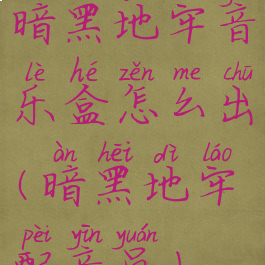 暗黑地牢音
lè hé zěn me chū
乐盒怎么出
àn hēi dì láo
(暗黑地牢
pèi yīn yuán
配音员)